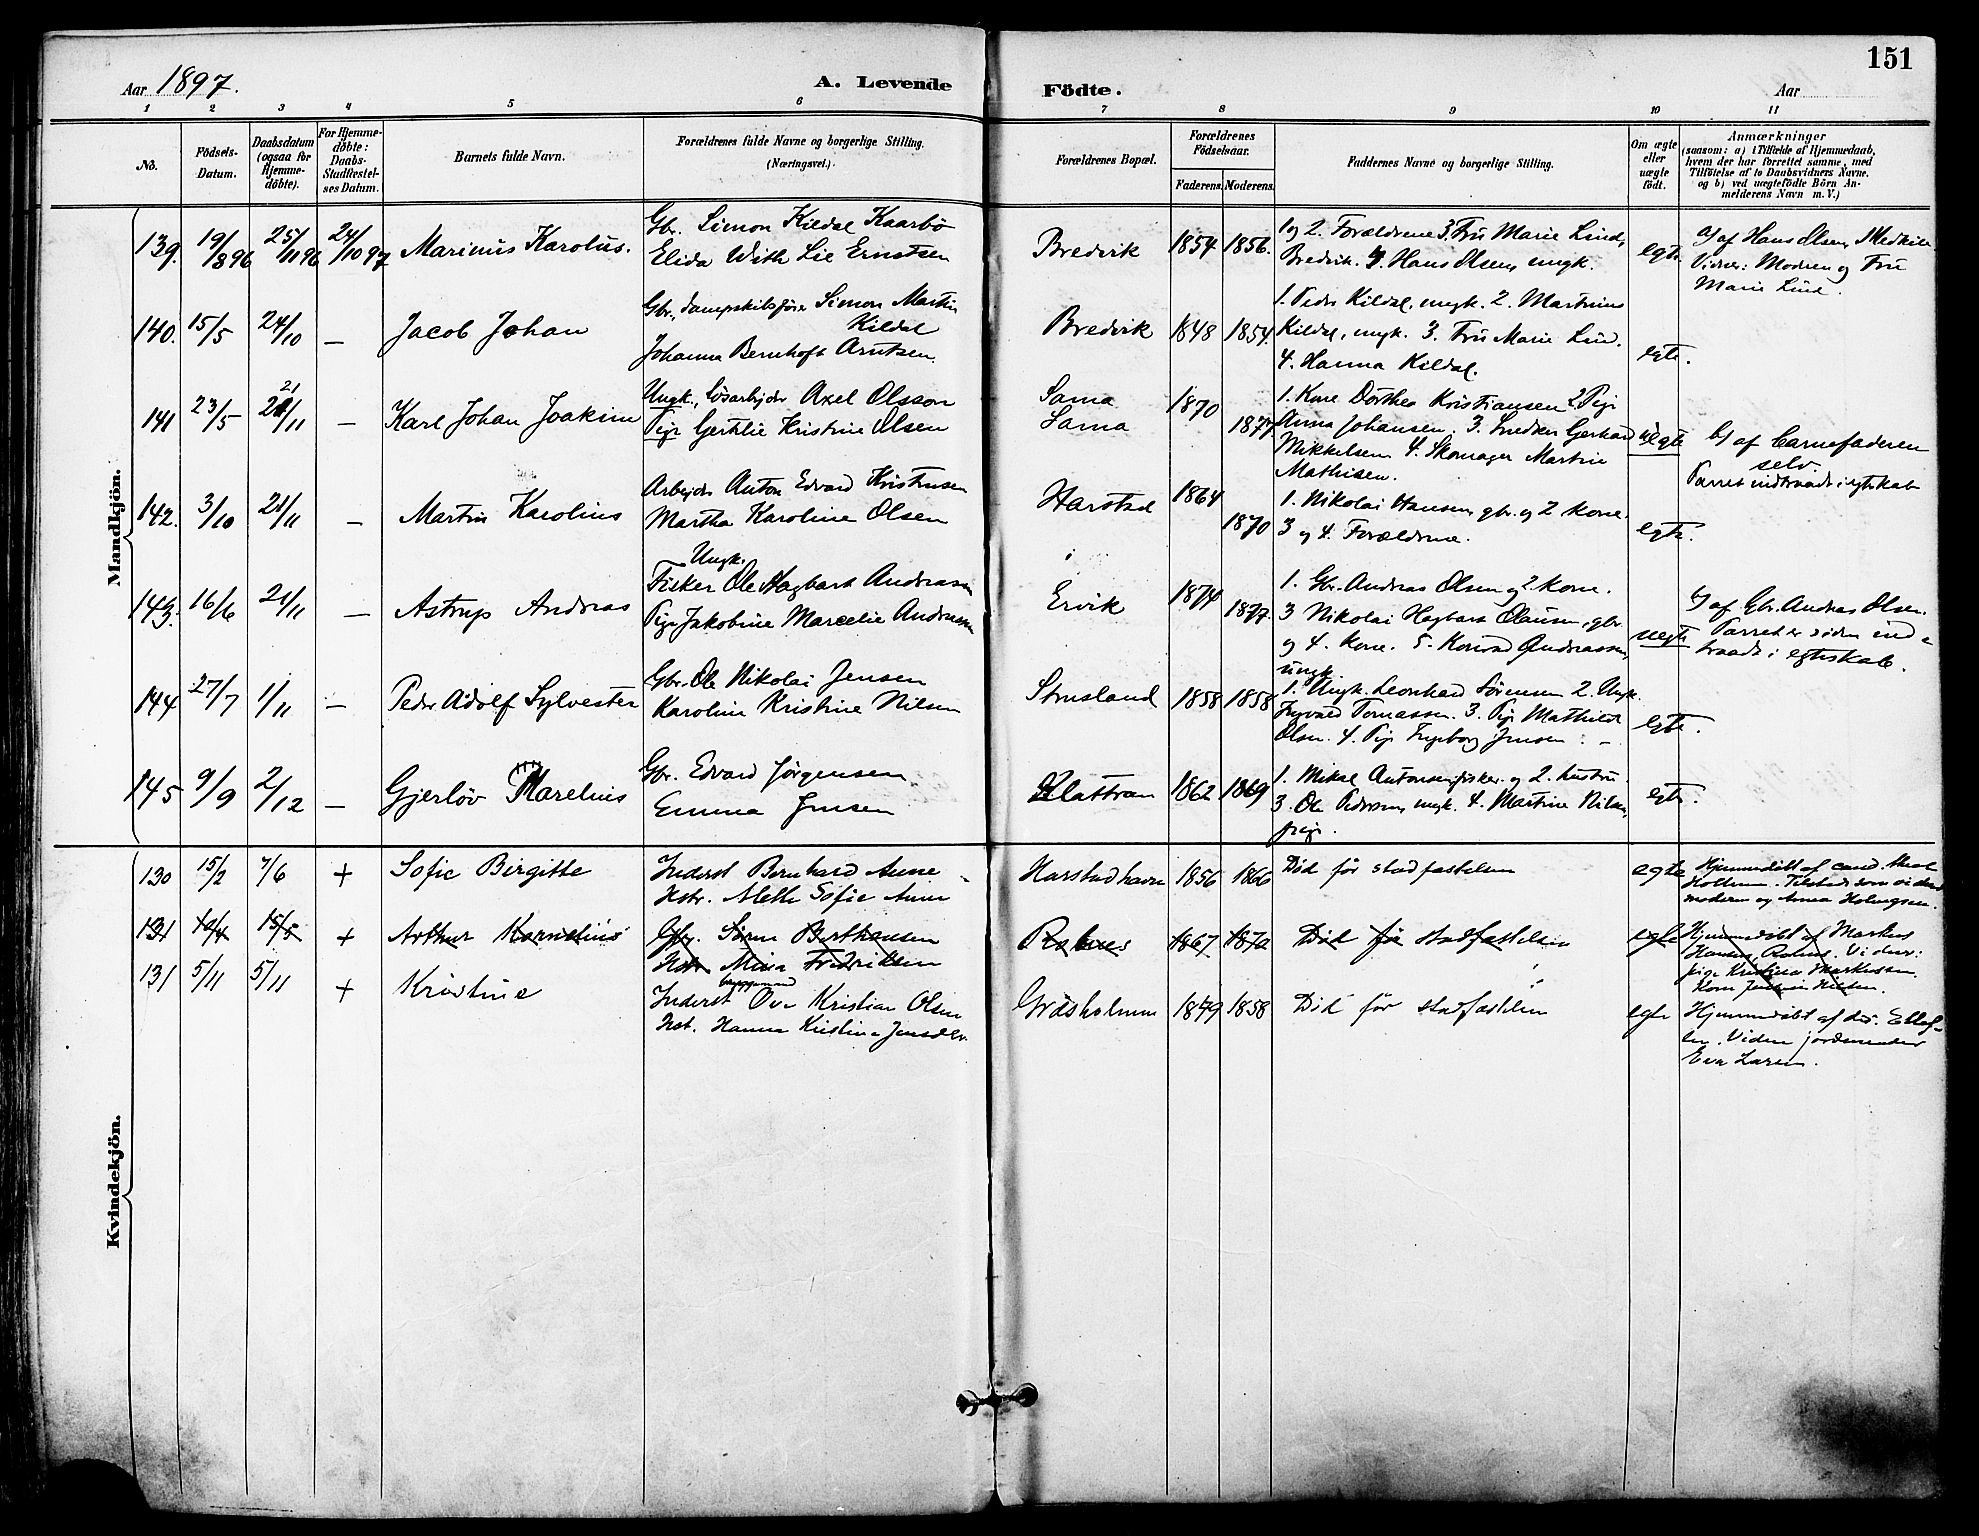 151
Aar 1897.
A. Levende Födte.
Aar
1 2 3 4 5 6 7 8 9 10 11
No.
Födsels-Datum.
Daabsdatum (ogsaa for Hjemmedöbte).
For Hjemmedöbte: Daabs-Stadfæstelses Datum.
Barnets fulde Navn.
Forældrenes fulde Navne og borgerlige Stilling. (Næringsvei.)
Forældrenes Bopæl.
Forældrenes Födselsaar.
Faderens. Moderens.
Faddernes Navne og borgerlige Stilling.
Om ægte eller uægte födt.
Anmærkninger
(saasom: a) i Tilfælde af Hjemmedaab, hvem der har forrettet samme, med Tilföielse af to Daabsvidners Navne. og b) ved uægtefödte Börn Anmelderens Navn m. V.)
Mandkjön.
139. 19/8 96 25/11 96 24/10 97 Marinus Karolus.
Gbr. Simon Kildal Kaarbö
Elida With Lie Ernstsen
Bredvik 1854 1856.
1 og 2. Forældrene 3. Fru Marie Lind,
Bredvik. 4. Hans Olsen, ungk.
egte.
a) af Hans Olsen, Medkila.
Vidner: Modren og Fru
Marie Lind.
140. 15/5 24/10 – Jacob Johan
Gbr., dampskibsförer Simon Martin
Kildal
Johanna Bernhoft Arntsen.
Bredvik 1848 1854.
1. Peder Kildal, ungk. 2. Martinus
Kildal, ungk. 3. Fru Marie Lind.
4. Hanna Kildal.
egte.
141 23/5 21/11 – Karl Johan Joakim
Ungk., lösarbejder Axel Olsson
Pige Gertilie Kristine Olsen
Sama
Sama
1870 1877
1. Kone Dorthea Kristiansen 2. Pige
Anna Johansen. 3. Snedker Gerhard
Mikkelsen 4. Skomager Martin
Mathisen.
uegte
b) af barnefaderen
selv.
Parret indtraadt i egteskab
142. 3/10 21/11 – Martin Karolius
Arbejder Anton Edvard Kristensen
Martha Karoline Olsen
Harstad 1864 1870
1. Nikolai Hansen, gbr. og 2 kone.
3 og 4. Forældrene.
egte.
143. 16/6 21/11 – Astrup Andreas
Ungk.
Fisker Ole Hagbart Andreassen
Pige Jakobine Marcelie Andreassen
Ervik 1874 1877.
1. Gbr. Andreas Olsen og 2 kone.
3 Nikolai Hagbart Olausen, gbr.
og 4. kone. 5. Konrad Andreassen,
ungk.
uegte
b) af Gbr. Andreas Olsen.
Parret er siden ind-
traadt i egteskab.
144 27/7 1/11 – Peder Adolf Sylvester
Gbr. Ole Nikolai Jensen
Karoline Kristine Nilsen
Strusland 1858 1858
1. Ungk. Leonhard Sörensen 2. Ungk.
Ingvald Tomassen. 3. Pige Mathilde
Olsen. 4. Pige Ingeborg Jensen. –
egte.
145 9/9 2/12 – Gjerlöv Marelius
Gbr. Edvard Jörgensen
Emma Jensen
Slattran 1862 1869
1. Mikal Antonsen, fisker. og 2. hustru.
3. Ole Pedersen, ungk. 4. Martine Nilsen,
pige.
egte.
Kvindekjön.
130 15/2 7/6 + Sofie Birgitte
Inderst Bernhard Aune
Hst. Aleth Sofie Aune
Harstadhavn 1856 1866
Död för stadfæstelsen
egte
Hjemmedöbt af cand.
moderen og Anna Holmgsen.
131 10/4 15/5 + Arthur Kornelius
Gbr. Sören Berthausen
Hst. Mina Fredriksen
1867 1870
Död för stadfæstelsen
egte
Hjemmedöbt af Markus
Hansen, Vidner:
pige Kristina Markussen.
131 5/11 5/11 + Kristine
Inderst Ove Kristian Olsen
Hst. Hanna Kristina
Grdsholmen 1879 1858
Död för stadfæstelsen
egte
Hjemmedöbt af
Vidne jordemoder
Eva Larsen.